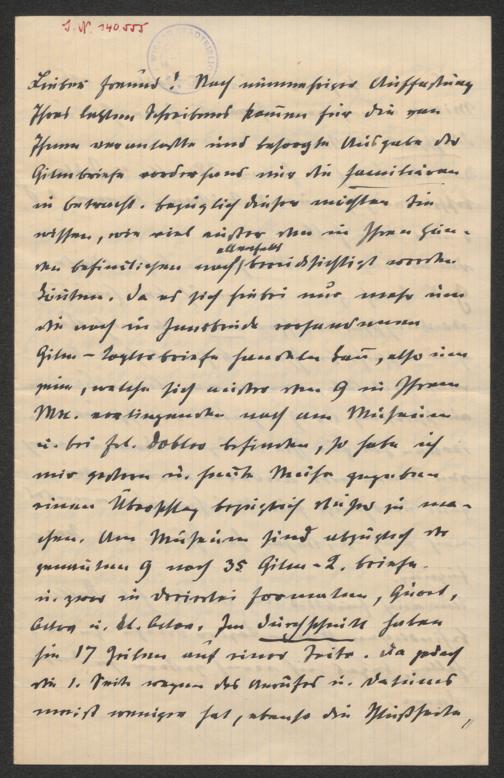 J. N. 140555
Lieber Freund! Nach nunmehriger Auffassung
Ihres letzten Schreibens kommen für die von
Ihnen veranstaltete und besorgte Ausgabe der
Gilmbriefe vorderhand nur die familiären
in betracht. bezüglich dieser möchten Sie
wissen, wie viel außer den in Ihren Hän-
den befindlichen noch allenfalls berücksichtigt werden
könnten. Da es sich hiebei nur mehr um
die noch in Innsbruck vorhandenen
Gilm - briefe handeln kann, also um
jene, welche sich außer den 9 in Ihrem
Mk. vorliegenden noch am Museum
u. bei Frl. befinden, so habe ich
mir gestern u. heute Mühe gegeben
einen Überschlag bezüglich dieser zu ma-
chen. Am Museum sind abzüglich der
genannten 9 noch 35 Gilm - briefe
u. zwar in dreierlei Formaten, Quart,
Octav u. kl. Octav. Im Durchschnitt haben
sie 17 Zeilen auf einer Seite. Da jedoch
die 1. Seite wegen des Anrufes u. Datums
meist weniger hat, ebenso die Schlußseite,